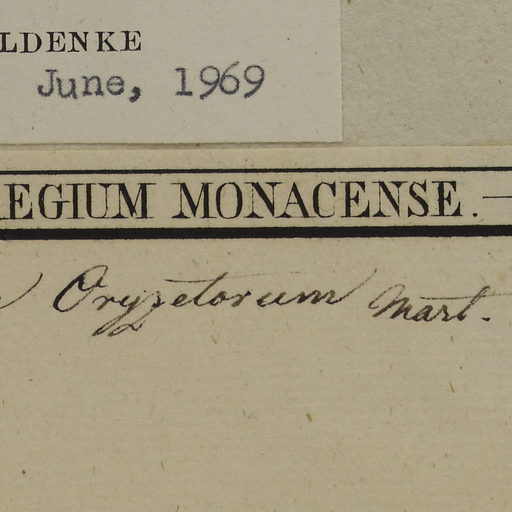 LDENKE
June, 1969
EGIUM MONACENSE.—
Oryzetorum Mart.